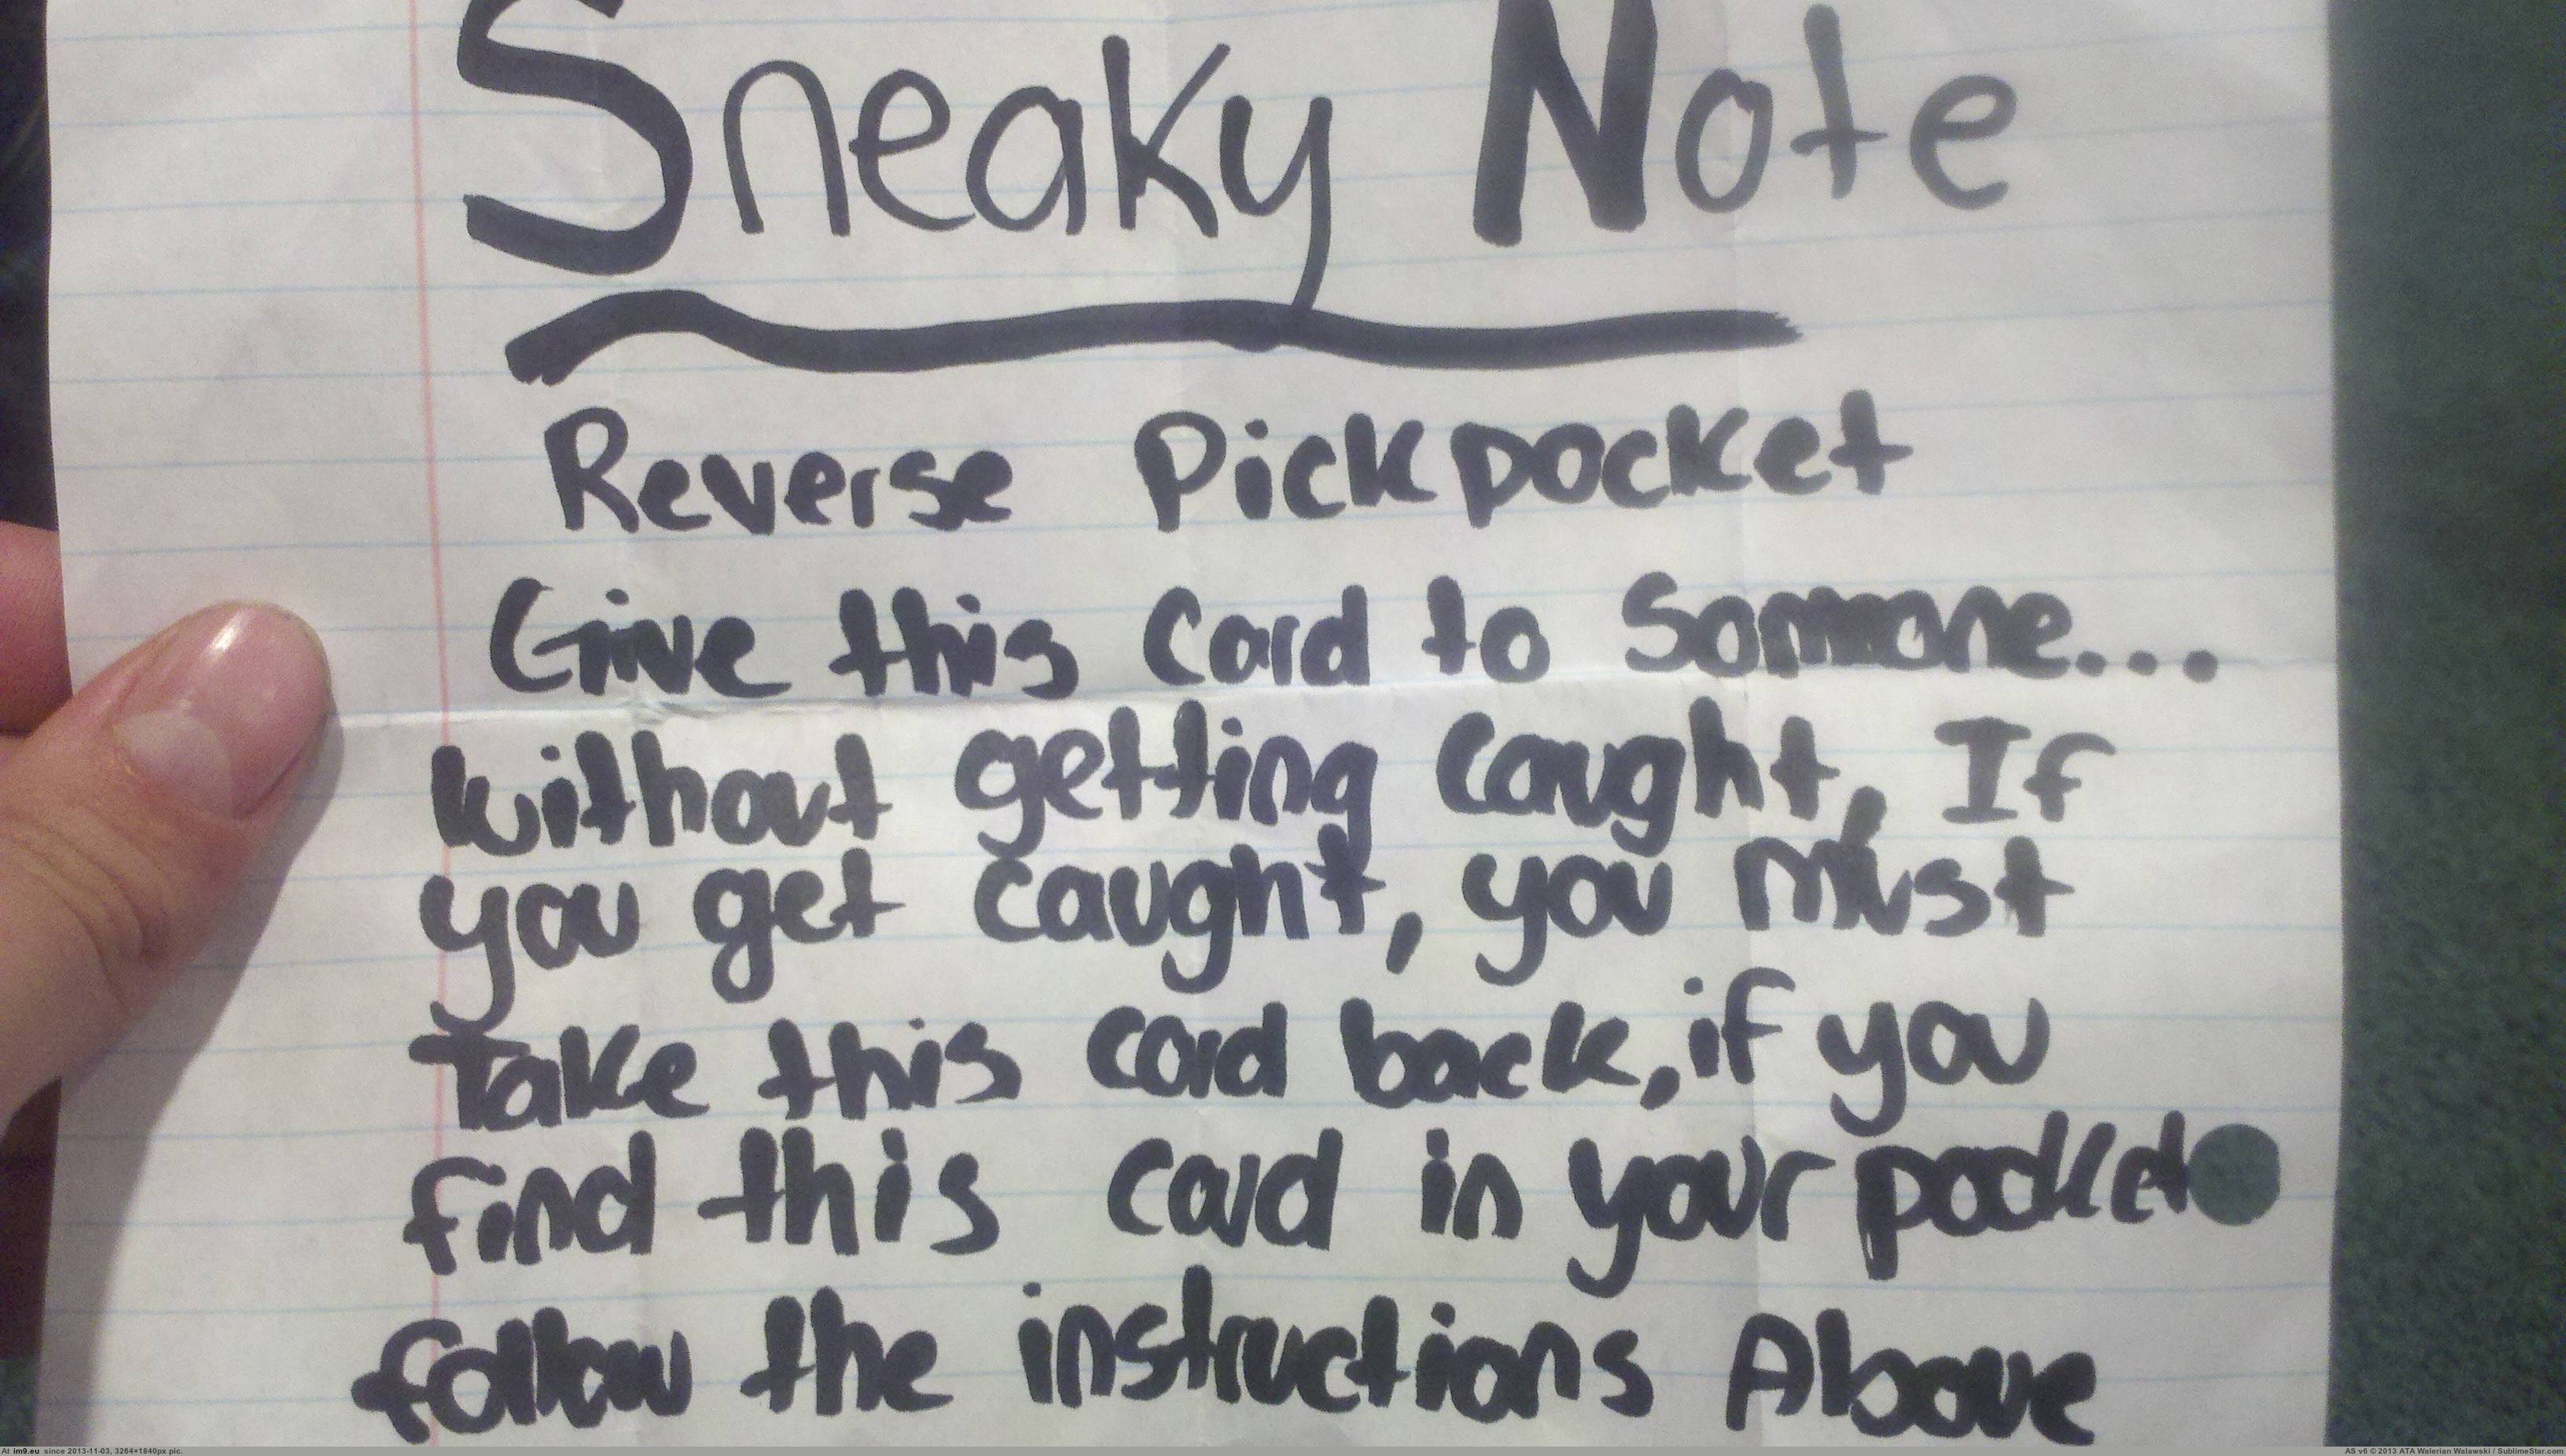 Sneaky Note
Reverse Pickpocket
Give this Card to Sommone...
without getting Caught, If
you get caught, you must
Take this card back, if you
find this card in your pocket
follow the instructions Above
At im9.eu since 2013-11-03, 3264×1840px pic.
AS v6 © 2013 ATA Walerian Walawski / SublimeStar.com